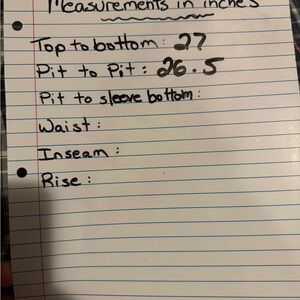 Measurements in inches
Top to bottom: 27
Pit to Pit: 26.5
Pit to sleeve bottom:
Waist:
Inseam:
Rise: